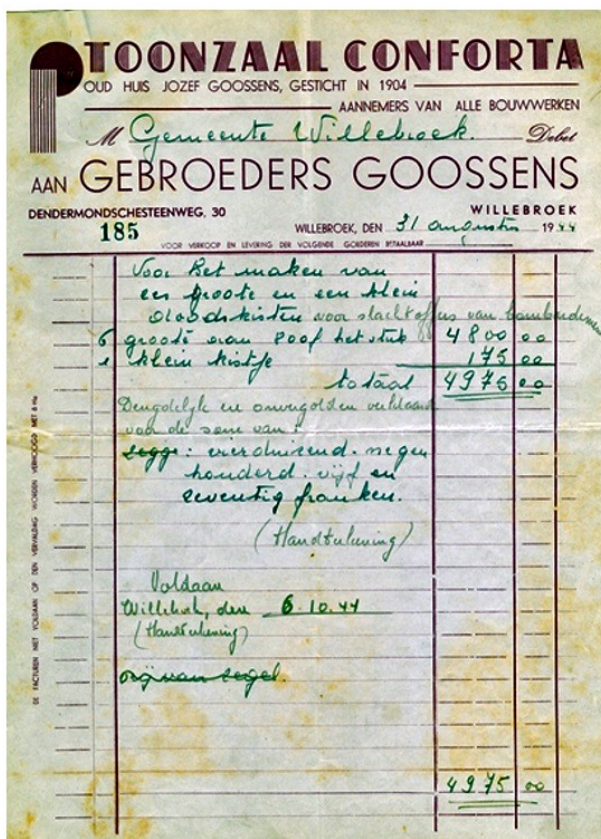 TOONZAAL CONFORTA
OUD HUIS JOZEF GOOSSENS, GESTICHT IN 1904
AANNEMERS VAN ALLE BOUWWERKEN
M Gemeente Willebroek. Debet
AAN GEBROEDERS GOOSSENS
DENDERMONDSCHESTEENWEG, 30 WILLEBROEK
185 WILLEBROEK, DEN 31 augustus 1944
VOOR VERKOOP EN LEVERING DER VOLGENDE GOEDEREN BETAALBAAR
Voor het maken van
zes groote en een klein
doodskisten voor slachtoffers van bombardement
6 groote aan 800f het stuk 4800 00
1 klein kistje 175 00
totaal 4975 00
Deugdelijk en onvergolden verklaard
voor de som van :
zegge : vierduizend negen
honderd vijf en
zeventig franken.
(Handtekening)
Voldaan
Willebroek, den 6.10.44
(Handtekening)
vrij van zegel.
4975 00
DE FACTUREN NIET VOLDAAN OP DEN VERVALDAG WORDEN VERHOOGD MET 6 %